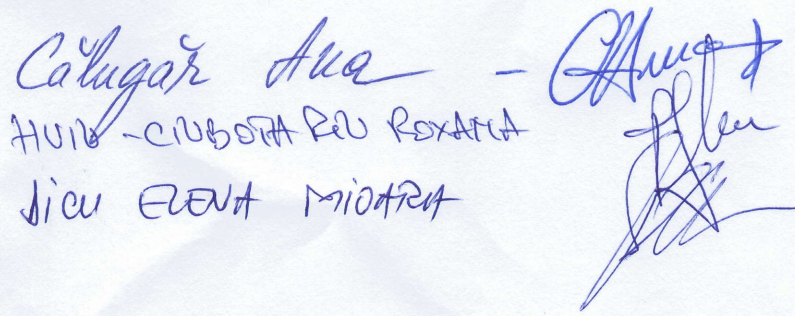 Călugăr Ana -
HUIU-CIUBOTARIU ROXANA
DICU ELENA MIOARA